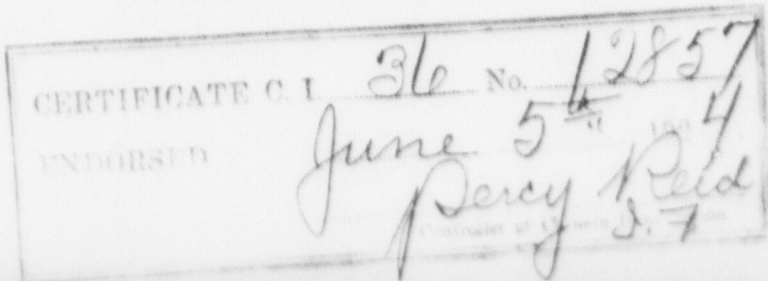 CERTIFICATE C. I. 36 No. 12857
ENDORSED June 5th 1904
Percy Reid
Controller of Chinese